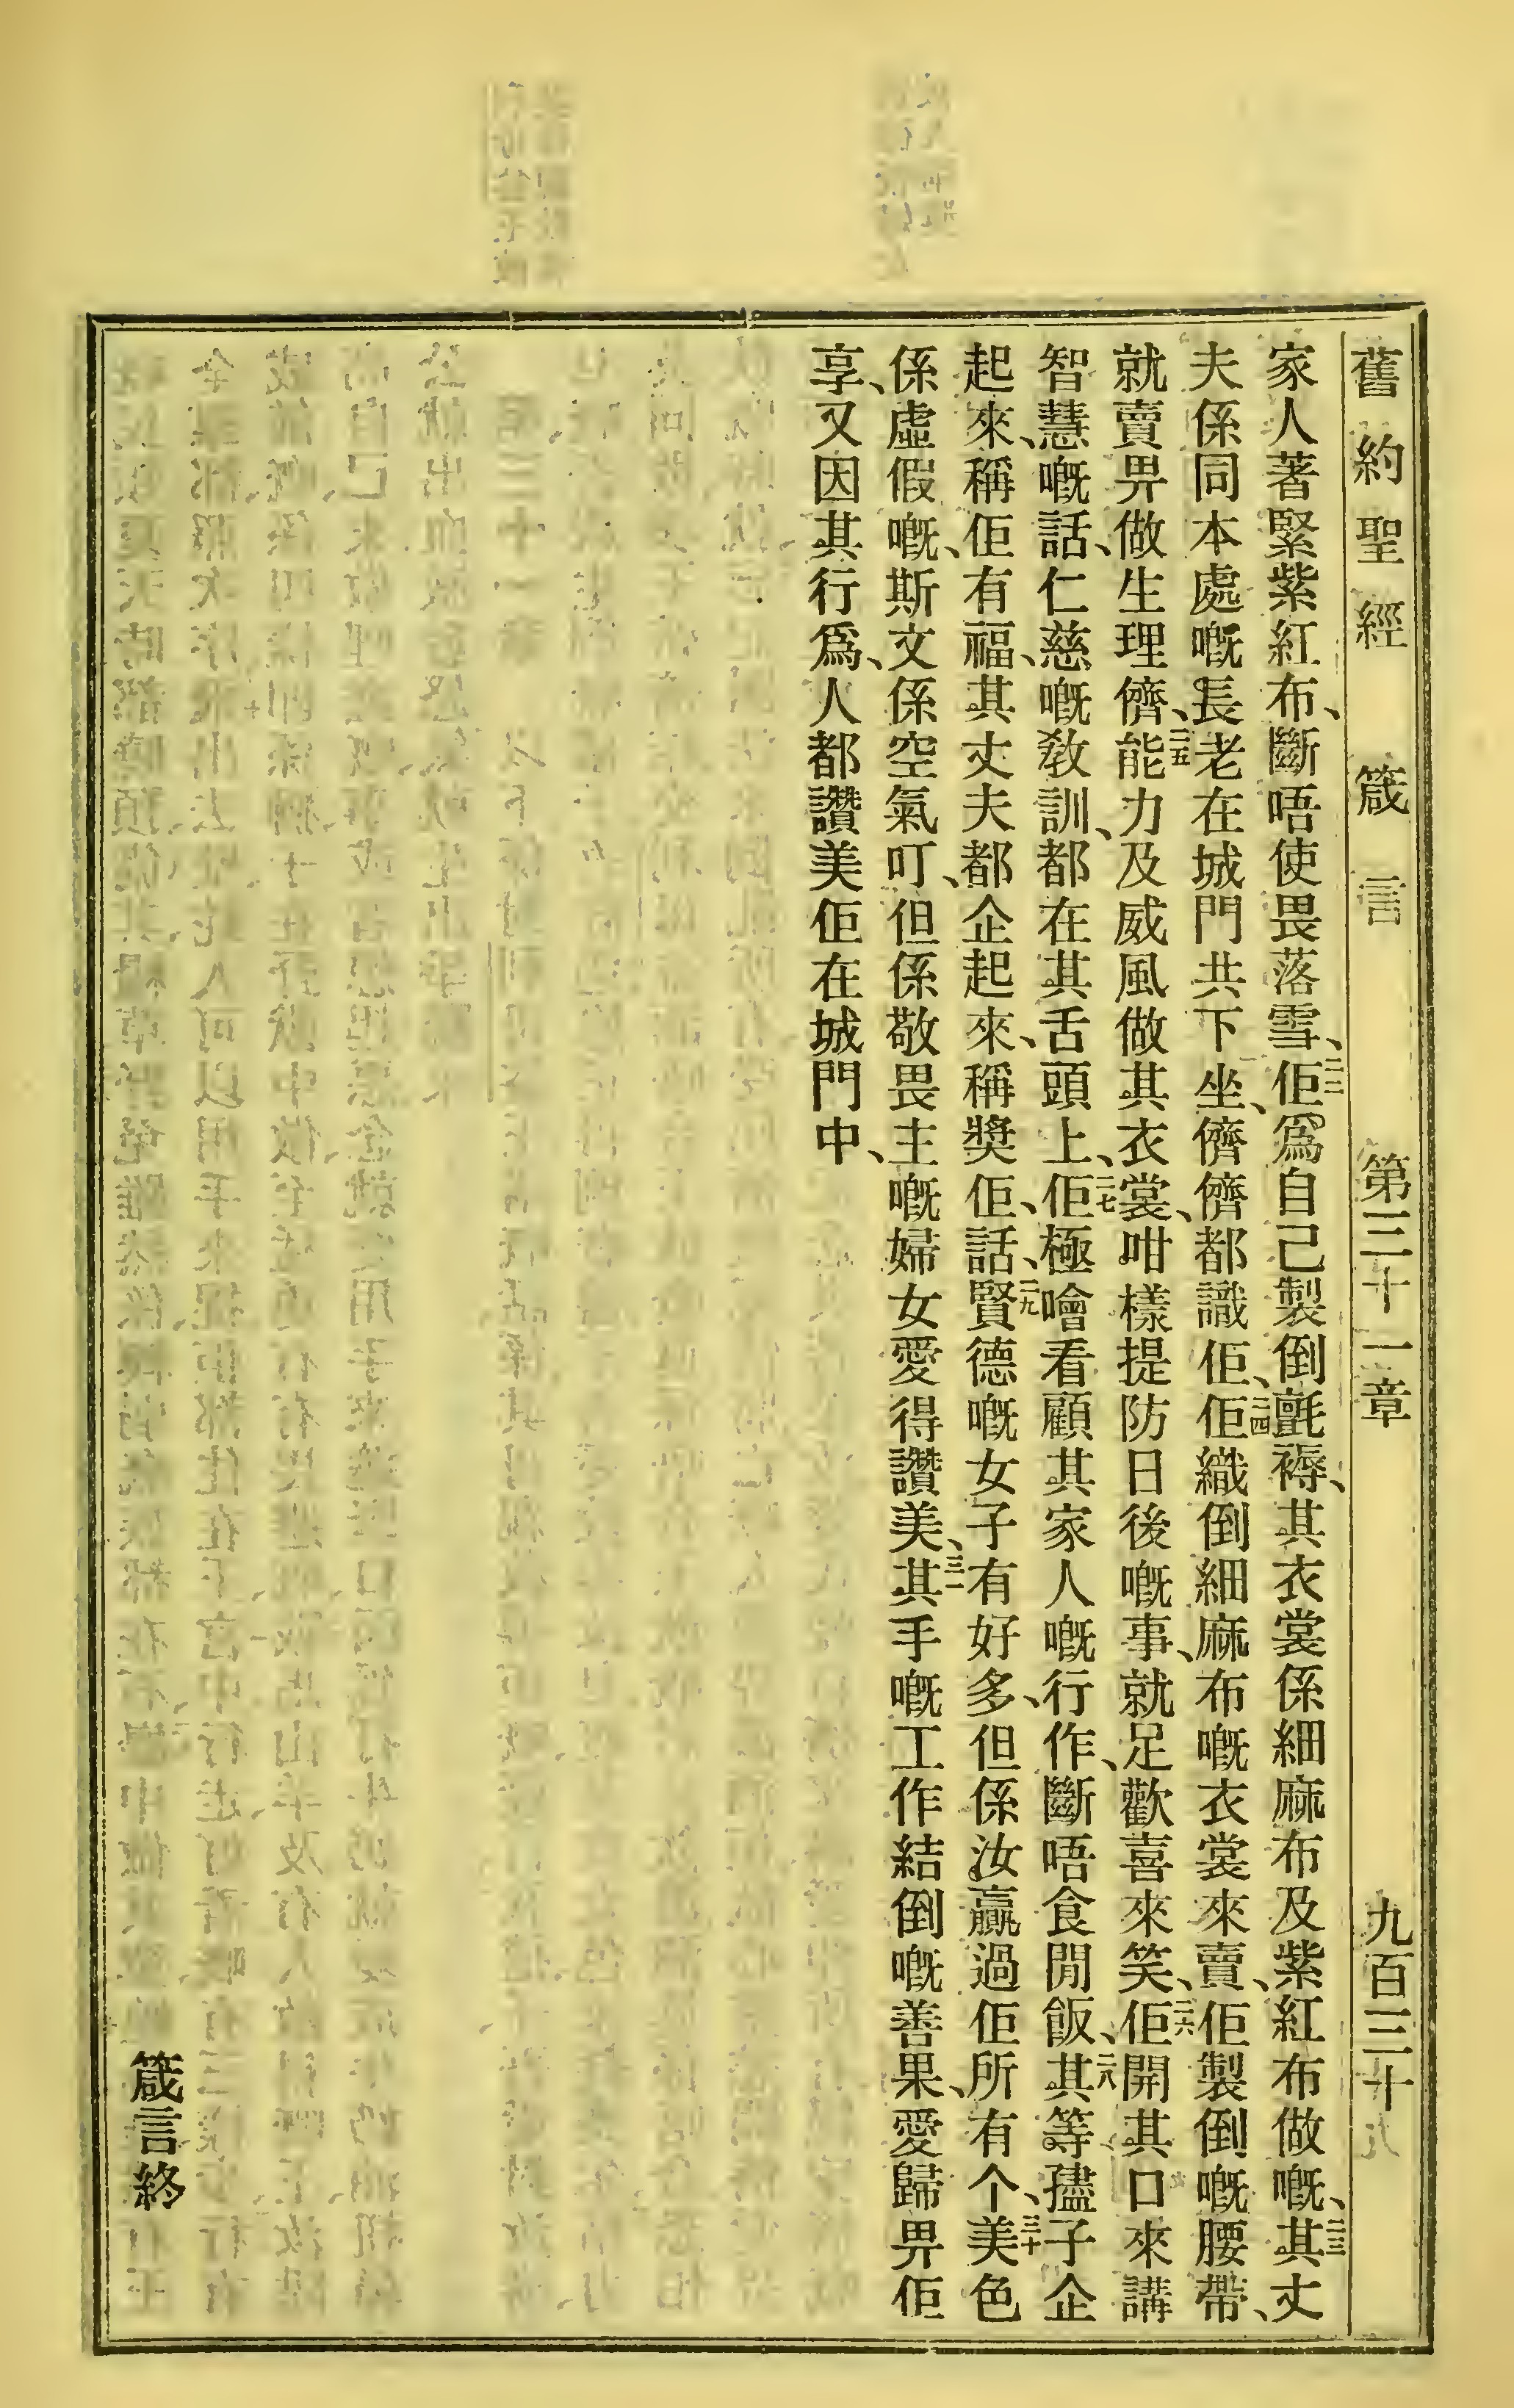 舊約聖經 箴言 第三十一章 九百三十九
家人著緊紫紅布、斷唔使畏落雪、二二佢爲自己製倒氈褥、其衣裳係細麻布及紫紅布做嘅、二三其丈
夫係同本處嘅長老在城門共下坐、儕儕都識佢、二四佢織倒細麻布嘅衣裳來賣、佢製倒嘅腰帶、
就賣畀做生理儕、二五能力及威風做其衣裳、咁樣提防日後嘅事、就足歡喜來笑、二六佢開其口來講
智慧嘅話、仁慈嘅教訓、都在其舌頭上、二七佢極噲看顧其家人嘅行作、斷唔食閒飯、二八其等孻子企
起來、稱佢有福、其丈夫都企起來、稱獎佢、話、二九賢德嘅女子有好多、但係汝贏過佢所有个、三十美色
係虛假嘅、斯文係空氣叮、但係敬畏主嘅婦女愛得讚美、三一其手嘅工作結倒嘅善果、愛歸畀佢
享、又因其行爲、人都讚美佢在城門中、
箴言終